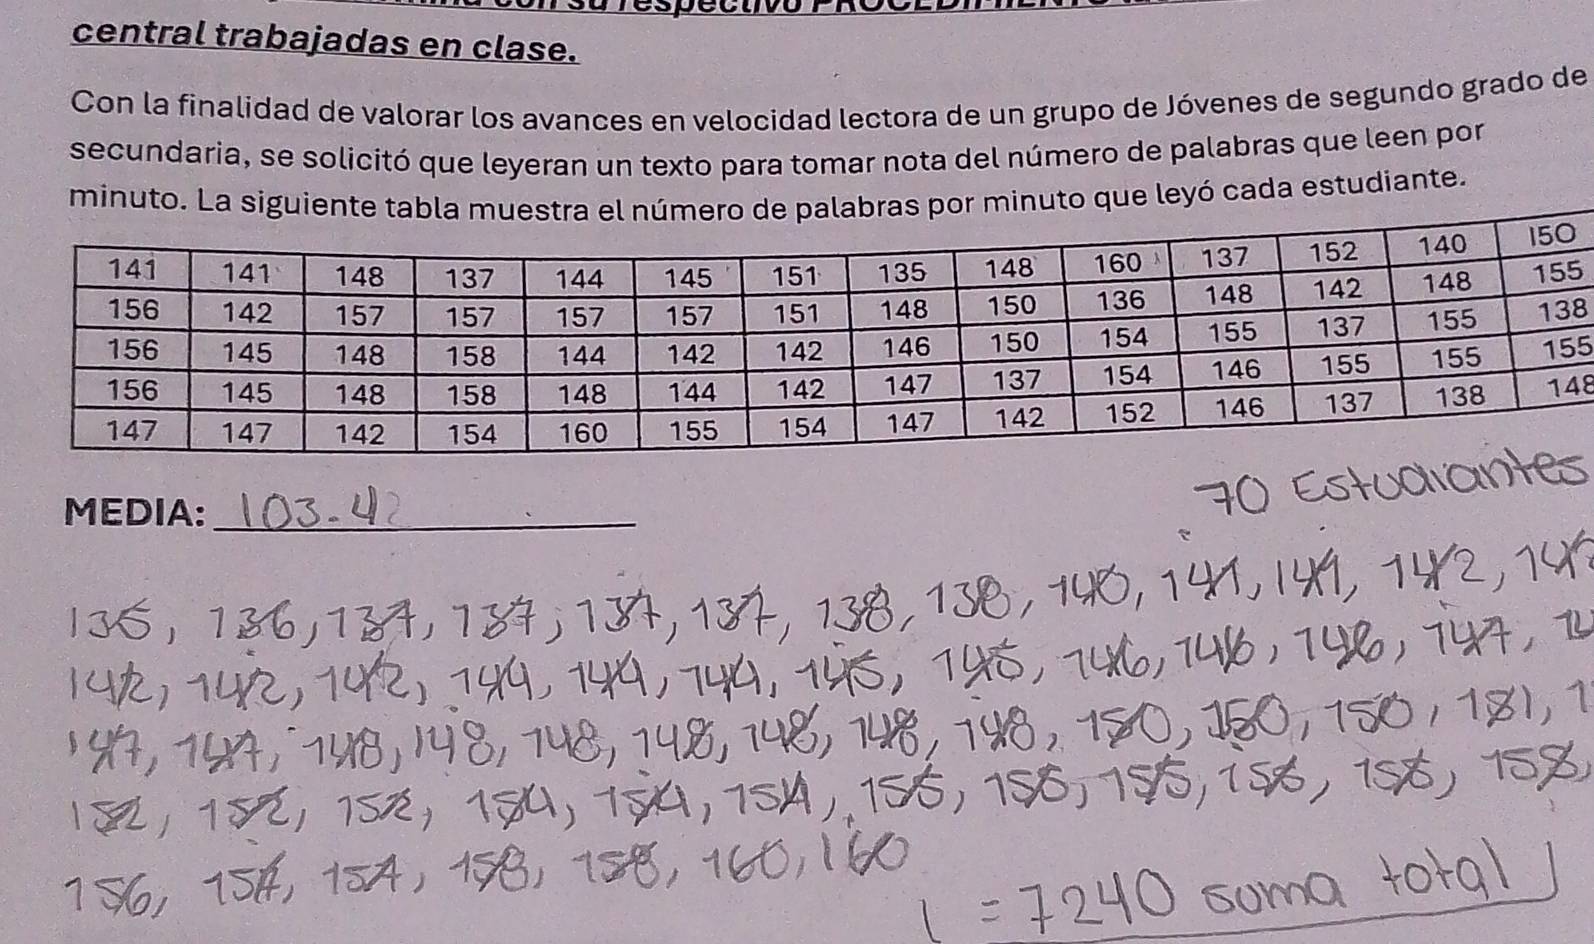 central trabajadas en clase.
Con la finalidad de valorar los avances en velocidad lectora de un grupo de Jóvenes de segundo grado de
secundaria, se solicitó que leyeran un texto para tomar nota del número de palabras que leen por
minuto. La siguiente tabla muestra el número de palabras por minuto que leyó cada estudiante.
141 141 148 137 144 145 151 135 148 160 137 152 140 150
156 142 157 157 157 157 151 148 150 136 148 142 148 155
156 145 148 158 144 142 142 146 150 154 155 137 155 138
156 145 148 158 148 144 142 147 137 154 146 155 155 155
147 147 142 154 160 155 154 147 142 152 146 137 138 148
70 Estudiantes
MEDIA: 103.42
135, 136, 137, 137, 137, 137, 138, 138, 140, 141, 141, 142,
142, 142, 142, 144, 144, 144, 145, 145, 146, 146, 146, 147,
147, 147, 148, 148, 148, 148, 148, 148, 148, 150, 150, 150, 151,
152, 152, 152, 154, 154, 154, 155, 155, 155, 155,
156, 158, 158, 160, 160
= 7240 suma total